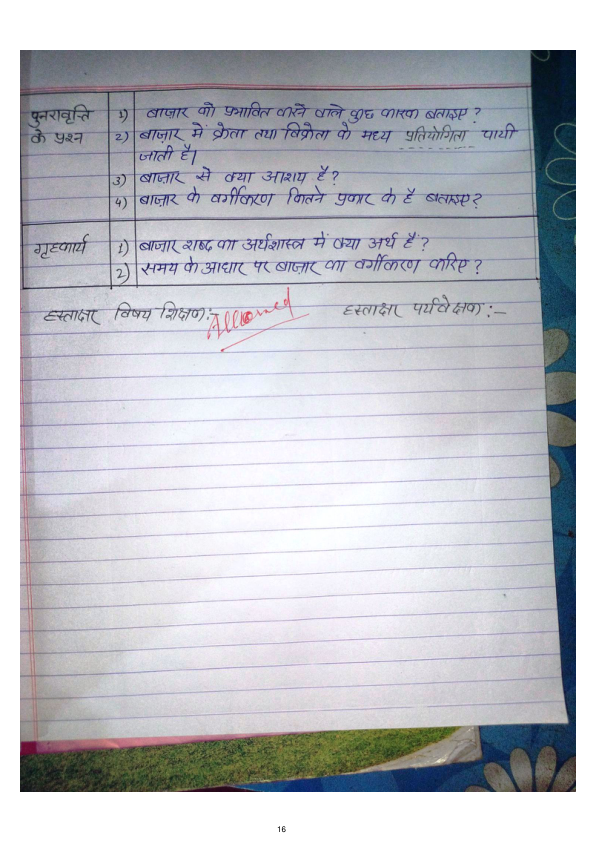 पुनरावृत्ति के प्रश्न
1) बाज़ार को प्रभावित करने वाले कुछ कारक बताइए ?
2) बाज़ार में क्रेता तथा विक्रेता के मध्य प्रतियोगिता पायी
जाती है।
3) बाज़ार से क्या आशय है ?
4) बाज़ार के वर्गीकरण कितने प्रकार के है बताइए ?
गृहकार्य
1) बाज़ार शब्द का अर्थशास्त्र में क्या अर्थ है ?
2) समय के आधार पर बाज़ार का वर्गीकरण करिए ?
हस्ताक्षर विषय शिक्षक :- Allowed हस्ताक्षर पर्यवेक्षक :-
16